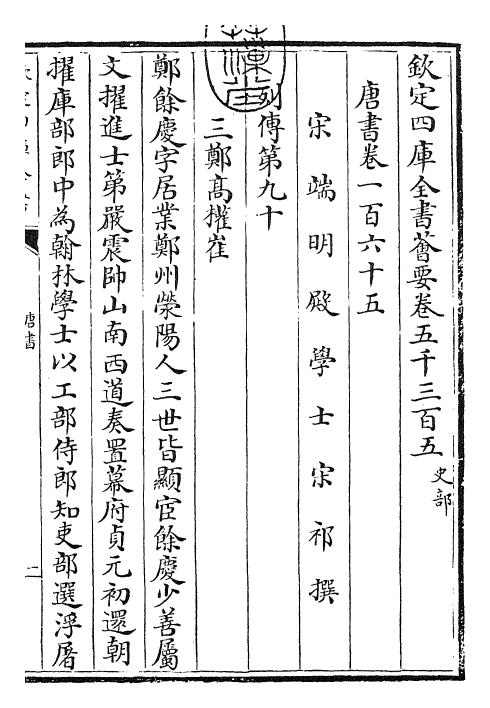 欽定四庫全書薈要卷五千三百五 史部
唐書卷一百六十五
宋端明殿學士宋祁撰
列傳第九十
三鄭高權崔
鄭餘慶字居業鄭州滎陽人三世皆顯宦餘慶少善屬
文擢進士第嚴震帥山南西道奏置幕府貞元初還朝
擢庫部郎中為翰林學士以工部侍郎知吏部選浮屠
唐書